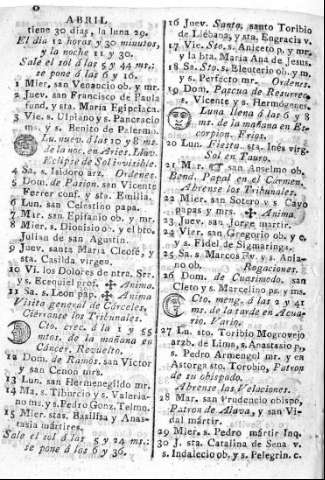 ABRIL
tiene 30 dias, la luna 29.
El dia 12 horas y 30 minutos,
y la noche 11 y 30.
Sale el sol á las 5 y 44 ms.;
se pone á las 6 y 16.
1 Mier, san Venancio ob. mr.
2 Juev. san Francisco de Paula
fund. y sta. María Egipciaca.
3 Vie. s. Ulpiano y s. Pancracio
ms. y s. Benito de Palermo.
Lu. nuev. á las 10 y 8 ms.
de la noc. en Aries. Lluv.
Eclipse de Sol invisible.
4 Sa. s. Isidoro arz. Ordenes.
5 Dom. de Pasion. san Vicente
Ferrer conf. y sta. Emilia.
6 Lun. san Celestino papa.
7 Mar. san Epifanio ob. y mr.
8 Mier. s. Dionisio ob. y el bto.
Julian de san Agustin.
9 Juev. santa María Cleofé, y
sta. Casilda virgen.
10 Vi. los Dolores de ntra. Sra.
y s. Ecequiel prof. ✠ Anima.
11 Sa. s. Leon pap. ✠ Anima
Visita general de Cárceles.
Ciérranse los Tribunales.
Cto. crec. á la 1 y 55
mtos. de la mañana en
Cáncer. Revuelto.
12 Dom. de Ramos. san Victor
y san Cenon mrs.
13 Lun. san Hermenegildo mr.
14 Ma. s. Tiburcio y s. Valeria-
no ms. y s. Pedro Gonz. Telmo.
15 Mier. stas. Basilisa y Anas-
tasia mártires.
Sale el sol á las 5 y 24 ms.;
se pone á las 6 y 36.
16 Juev. Santo, santo Toribio
de Liébana, y sta. Engracia v.
17 Vie. Sto. s. Aniceto p. y mr.
y la bta. María Ana de Jesus.
18 Sa. Sto. s. Eleuterio ob. y m.
y s. Perfecto mr. Ordenes.
19 Dom. Pascua de Resurrec.
s. Vicente y s. Hermógenes.
Luna llena á las 6 y 8
ms. de la mañana en Es-
corpion. Frios.
20 Lun. Fiesta. sta. Inés virg.
Sol en Tauro.
21 Mar. san Anselmo ob.
Bend. Papal en el Cármen.
Abrense los Tribunales.
22 Mier. san Sotero y s. Cayo
papas y mrs. ✠ Anima.
23 Juev. san Jorge mártir.
24 Vier. san Gregorio ob. y c.
y s. Fidel de Sigmaringa.
25 Sa. s. Marcos Ev. y s. Ania-
no ob. Rogaciones.
26 Dom. de Cuasimodo. san
Cleto y s. Marcelino ps. y ms.
Cto. meng. á las 2 y 41
ms. de la tarde en Acua-
rio. Vario.
27 Lu. sto. Toribio Mogrovejo
arzb. de Lima, s. Anastasio p.,
s. Pedro Armengol mr. y en
Astorga sto. Toribio, Patron
de su obispado.
Abrense las Velaciones.
28 Mar. san Prudencio obispo,
Patron de Alava, y san Vi-
dal mártir.
29 Mier. s. Pedro mártir Inq.
30 J. sta. Catalina de Sena v.
s. Indalecio ob. y s. Pelegrin. c.